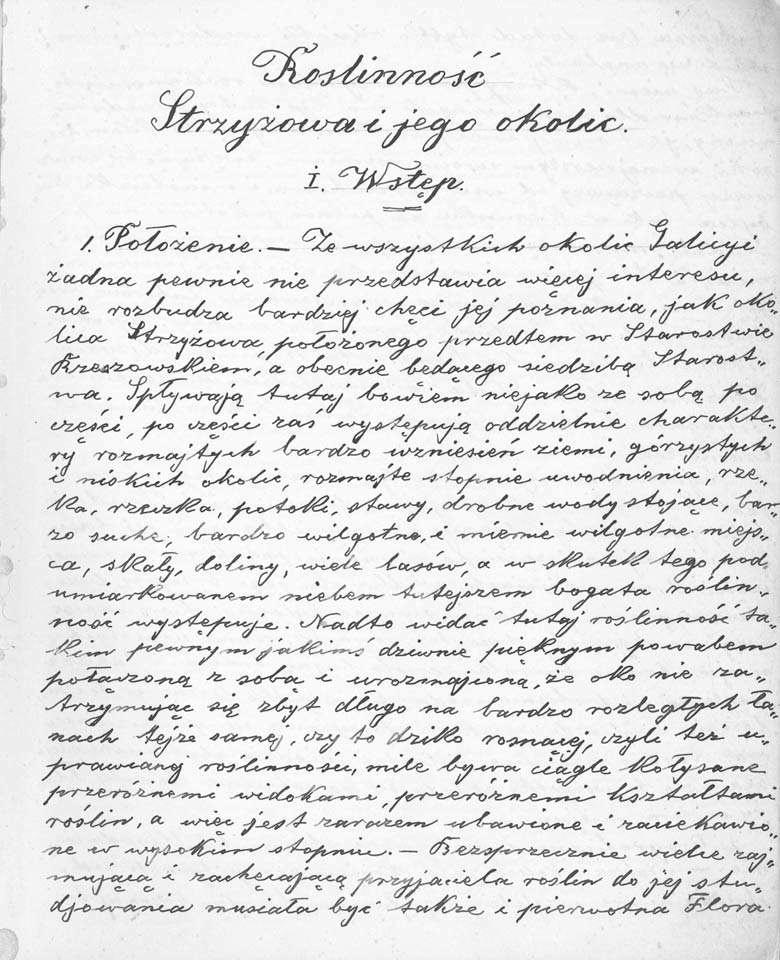 Roślinność
Strzyżowa i jego okolic.
I. Wstęp.
1. Położenie. — Ze wszystkich okolic Galicyi
żadna pewnie nie przedstawia więcej interesu,
nie rozbudza bardziej chęci jej poznania, jak oko„
lica Strzyżowa, położonego przedtem w Starostwie
Rzeszowskiem, a obecnie będącego siedzibą Starost„
wa. Spływają tutaj bowiem niejako ze sobą po
części, po części zaś występują oddzielnie charakte„
ry rozmajtych bardzo wzniesień ziemi, górzystych
i niskich okolic, rozmajte stopnie uwodnienia, rze„
ka, rzeczka, potoki, stawy, drobne wody stojące, bar„
zo suche, bardzo wilgotne, i miernie wilgotne miejs„
ca, skały, doliny, wiele lasów, a w skutek tego pod
umiarkowanem niebem tutejszem bogata roślin„
ność występuje. Nadto widać tutaj roślinność ta„
kim pewnym jakimś dziwnie pięknym powabem
połączoną z sobą i urozmajconą, że oko nie za„
trzymując się zbyt długo na bardzo rozległych ła„
nach tejże samej, czy to dziko rosnącej, czyli też u„
prawianej roślinności, mile bywa ciągle kołysane
przeróżnemi widokami, przeróżnemi kształtami
roślin, a więc jest zarazem ubawione i zaciekawio„
ne w wysokim stopniu. — Bezsprzecznie wielce zaj„
mującą i zachęcającą przyjaciela roślin do jej stu„
djowania musiała być także i pierwotna Flora